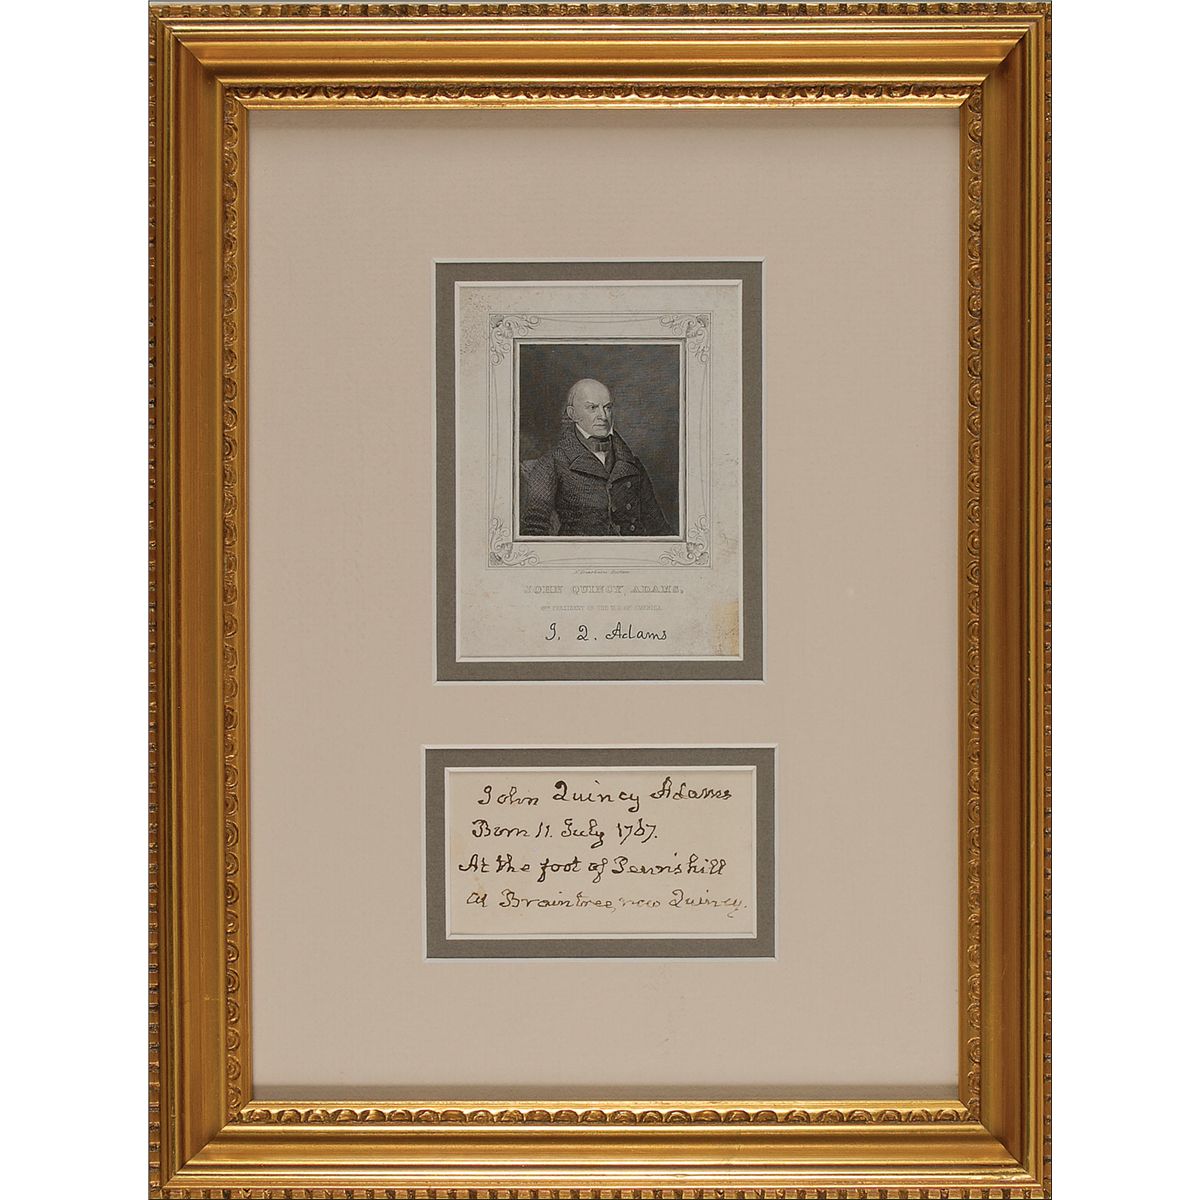 JOHN QUINCY ADAMS,
6TH PRESIDENT OF THE U.S. OF AMERICA.
J. Q. Adams
John Quincy Adams
Born 11. July 1767.
At the foot of Penn's hill
at Braintree, now Quincy.